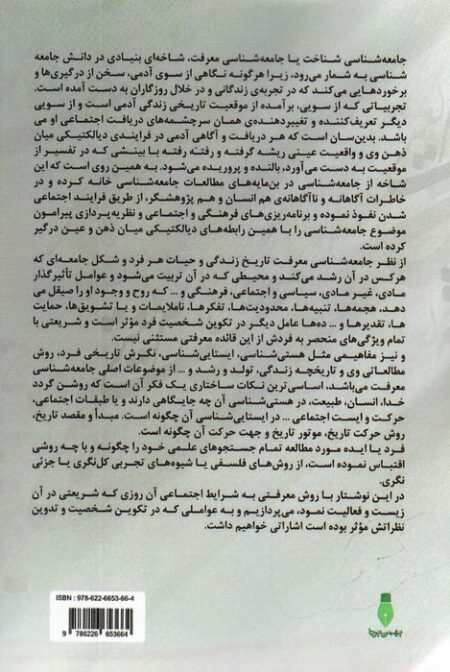 جامعه‌شناسی شناخت یا جامعه‌شناسی معرفت، شاخه‌ای بنیادی در دانش جامعه
شناسی به شمار می‌رود، زیرا هرگونه نگاهی از سوی آدمی، سخن از درگیری‌ها و
برخوردهایی می‌کند که در تجربه‌ی زندگانی و در خلال روزگاران به دست آمده است.
تجربیاتی که از سویی، برآمده از موقعیت تاریخی زندگی آدمی است و از سویی
دیگر تعریف‌کننده و تغییردهنده‌ی همان سرچشمه‌های دریافت اجتماعی او می
باشد. بدین‌سان است که هر دریافت و آگاهی آدمی در فرایندی دیالکتیکی میان
ذهن وی و واقعیت عینی ریشه گرفته و رفته رفته با بینشی که در تفسیر از
موقعیت به دست می‌آورد، بالنده و پروریده می‌شود. به همین روی است که این
شاخه از جامعه‌شناسی در بن‌مایه‌های مطالعات جامعه‌شناسی خانه کرده و در
خاطرات آگاهانه و ناآگاهانه‌ی هم انسان و هم پژوهشگر، از طریق فرایند اجتماعی
شدن نفوذ نموده و برنامه‌ریزی‌های فرهنگی و اجتماعی و نظریه‌پردازی پیرامون
موضوع جامعه‌شناسی را با همین رابطه‌های دیالکتیکی میان ذهن و عین درگیر
کرده است.
از نظر جامعه‌شناسی معرفت تاریخ زندگی و حیات هر فرد و شکل جامعه‌ای که
هرکس در آن رشد می‌کند و محیطی که در آن تربیت می‌شود و عوامل تأثیرگذار
مادی، غیر مادی، سیاسی و اجتماعی، فرهنگی و ... که روح و وجود او را صیقل می
دهد، هجمه‌ها، تنبیه‌ها، محدودیت‌ها، تفکرها، ناملایمات و یا تشویق‌ها، حمایت
ها، تقدیرها و ... ده‌ها عامل دیگر در تکوین شخصیت فرد مؤثر است و شریعتی با
تمام ویژگی‌های منحصر به فردش از این قائده معرفتی مستثنی نیست.
و نیز مفاهیمی مثل هستی‌شناسی، ایستایی‌شناسی، نگرش تاریخی فرد، روش
مطالعاتی وی و تاریخچه زندگی، تولد و رشد و ... از موضوعات اصلی جامعه‌شناسی
معرفت می‌باشد، اساسی‌ترین نکات ساختاری یک فکر آن است که روشن گردد
خدا، انسان، طبیعت، در هستی‌شناسی آن چه جایگاهی دارند و یا طبقات اجتماعی،
حرکت و ایست اجتماعی ... در ایستایی‌شناسی آن چگونه است. مبدأ و مقصد تاریخ،
روش حرکت تاریخ، موتور تاریخ و جهت حرکت آن چگونه است.
فرد یا ایده مورد مطالعه تمام جستجوهای علمی خود را چگونه و با چه روشی
اقتباس نموده است، از روش‌های فلسفی یا شیوه‌های تجربی کل‌نگری یا جزئی
نگری.
در این نوشتار با روش معرفتی به شرایط اجتماعی آن روزی که شریعتی در آن
زیست و فعالیت نمود، می‌پردازیم و به عواملی که در تکوین شخصیت و تدوین
نظراتش مؤثر بوده است اشاراتی خواهیم داشت.
ISBN : 978-622-6653-66-4
9 786226 653664